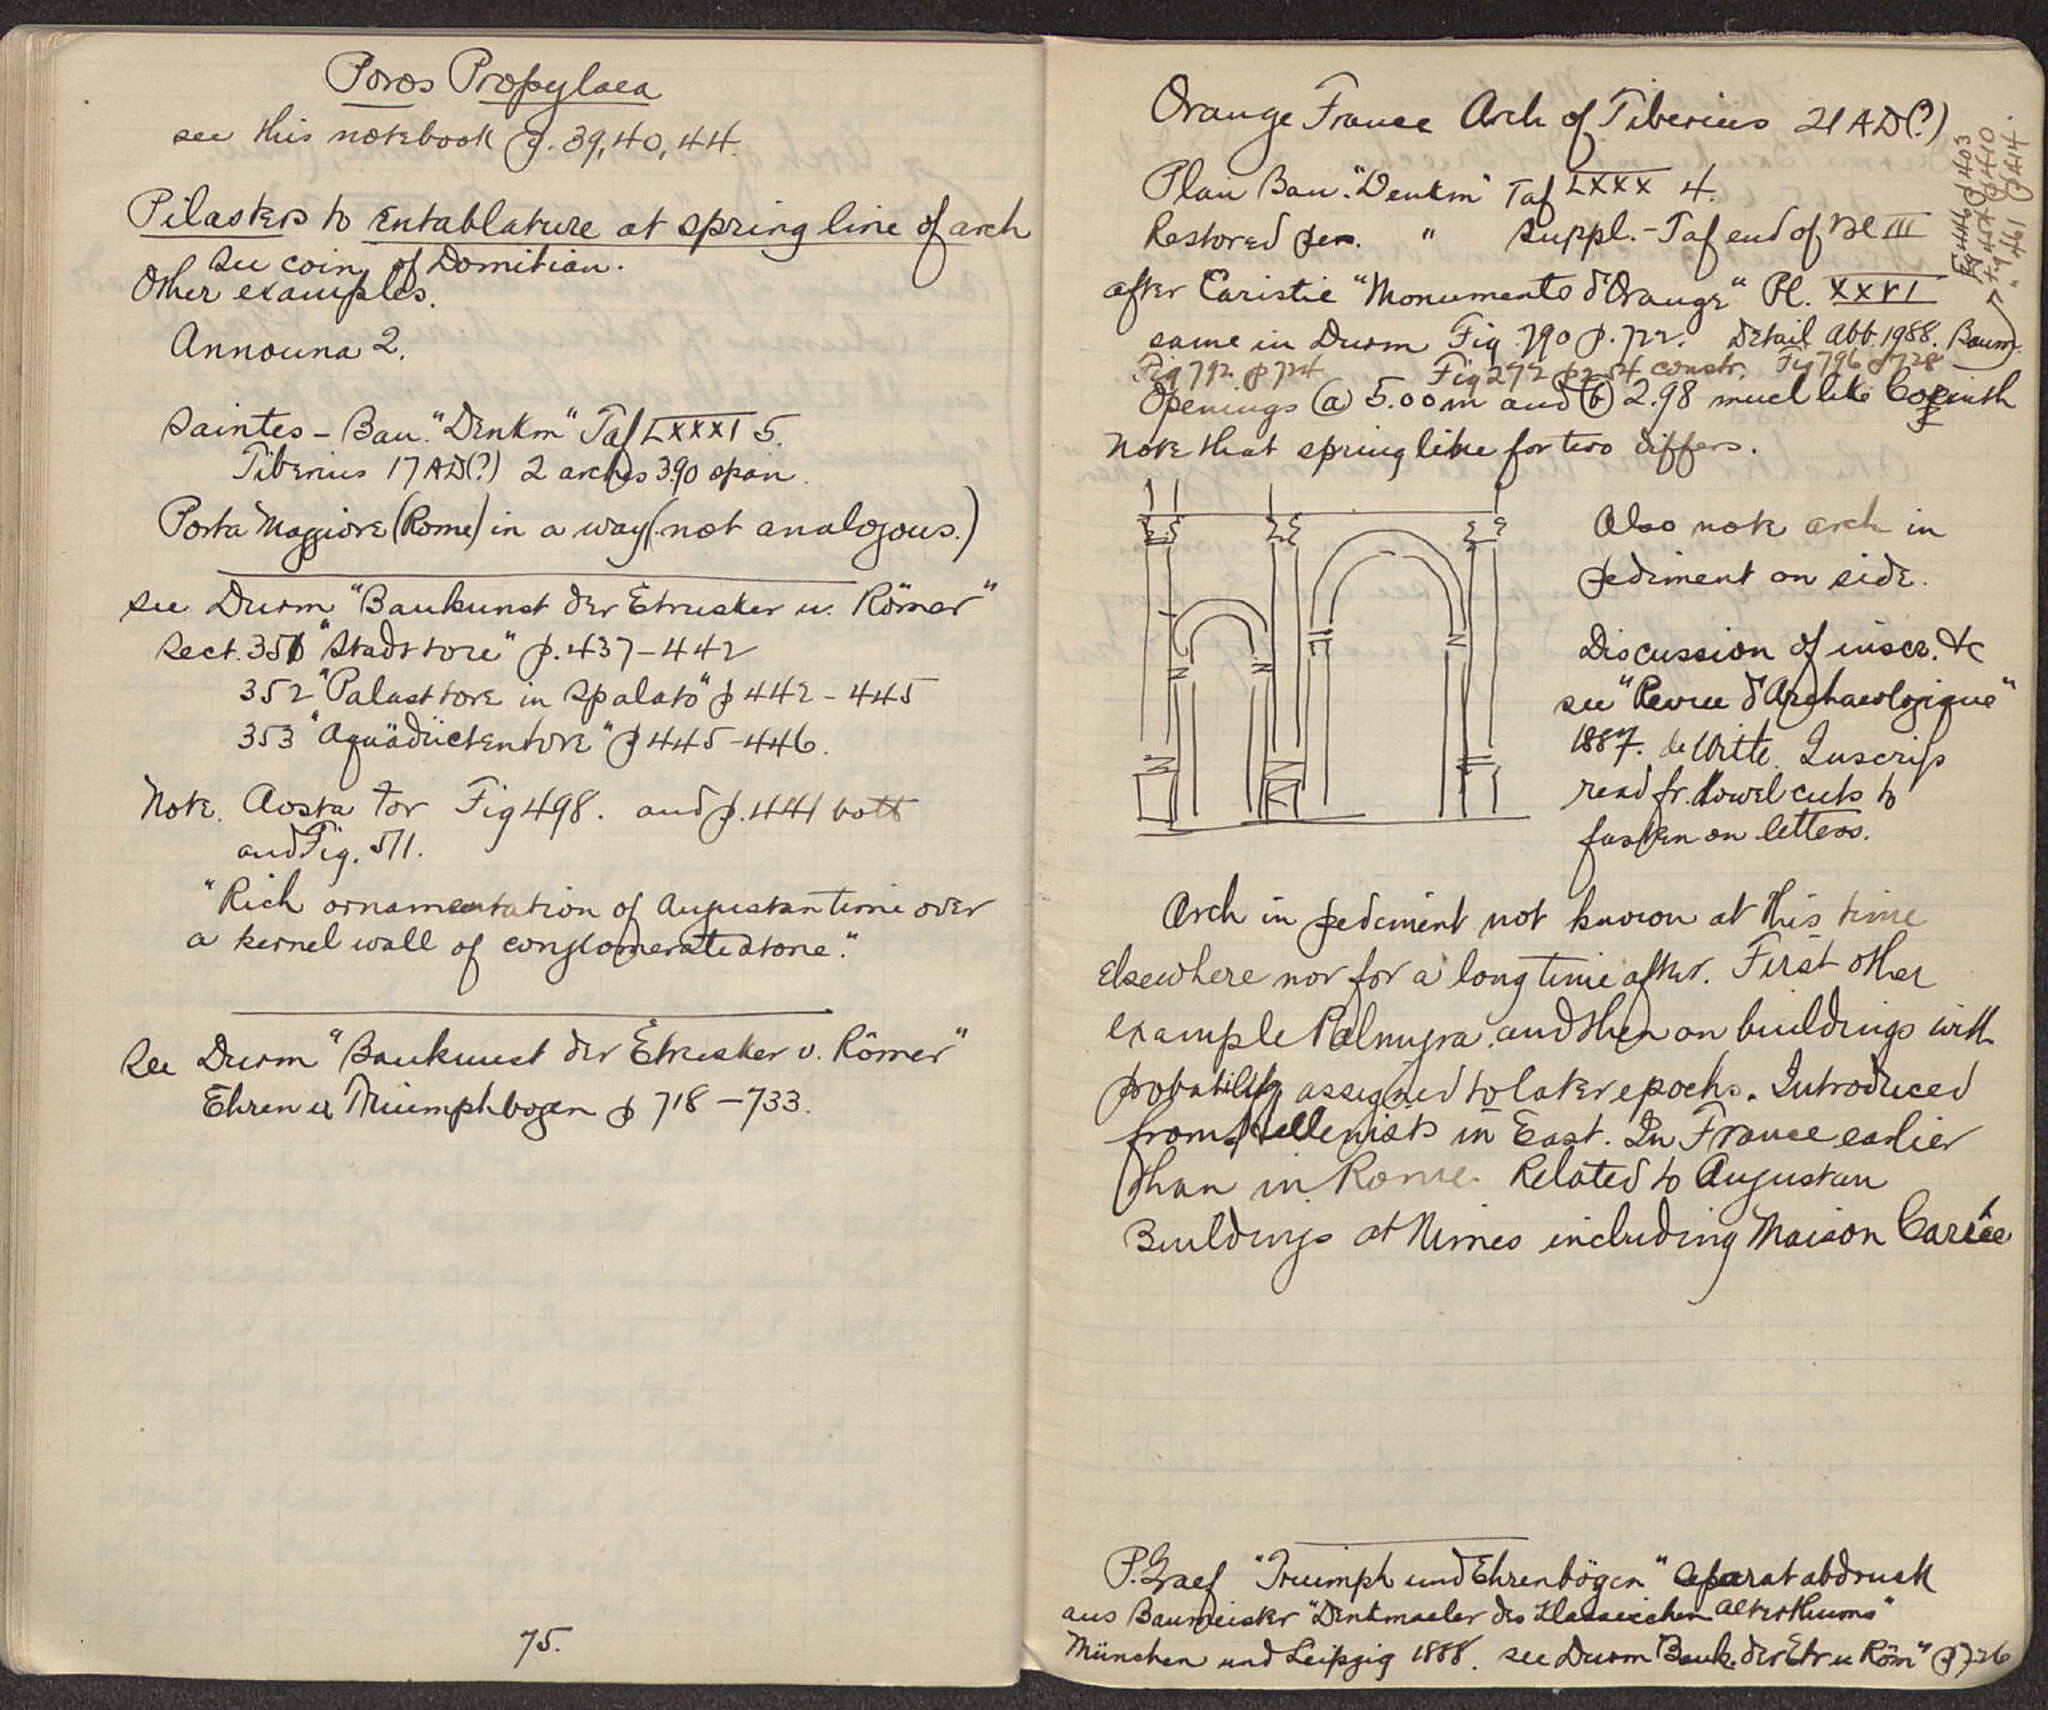 Poros Propylaea
see this notebook p. 39, 40, 44.
Pilasters to entablature at spring line of arch
see coin of Domitian.
Other examples.
Announa 2.
Saintes – Bau. "Denkm" Taf LXXXI 5.
Tiberius 17 AD(?) 2 arches 3.90 span.
Porta Maggiore (Rome) in a way (not analogous.)
see Durm "Baukunst der Etrusker u. Römer"
Sect. 351 "Stadttore" p. 437–442
352 "Palasttore in Spalato" p 442–445
353 "Aquädüctentore" p 445–446.
Note. Aosta Tor Fig 498. and p. 441 bott
and Fig. 511.
"Rich ornamentation of Augustan time over
a kernel wall of conglomerate stone."
See Durm "Baukunst der Etrusker u. Römer"
Ehren u Triumphbogen p 718–733.
75.
Orange France Arch of Tiberius 21 AD(?)
Plan Bau. "Denkm" Taf LXXX 4.
Restored per. " Suppl. – Taf end of Bd III
after Caristie "Monuments d'Orange" Pl. XXVI
same in Durm Fig. 790 p. 722. Detail Abb. 1988. Baum.
Fig 792 p 724 Fig 272 p 254 constr. Fig 796 p 728
Openings (a) 5.00m and (b) 2.98 much like Corinth
Note that spring line for two differs.
Fig 446 p 403
Fig 454 p 410
" 461 p 414.
Also note arch in
pediment on side.
Discussion of inscr. &c
see "Revue d'Archaeologique"
1887. de Witte. Inscrip
read fr. dowel cuts to
fasten on letters.
Arch in pediment not known at this time
elsewhere nor for a long time after. First other
example Palmyra and then on buildings with
probability assigned to later epochs. Introduced
from Hellenists in East. In France earlier
than in Rome. Related to Augustan
Buildings at Nimes including Maison Carrée
P. Graef "Triumph und Ehrenbögen" Separatabdruck
aus Baumeister "Denkmaeler des Klassischen Alterthums"
München und Leipzig 1888. see Durm "Bauk. der Etr u Röm" p 726